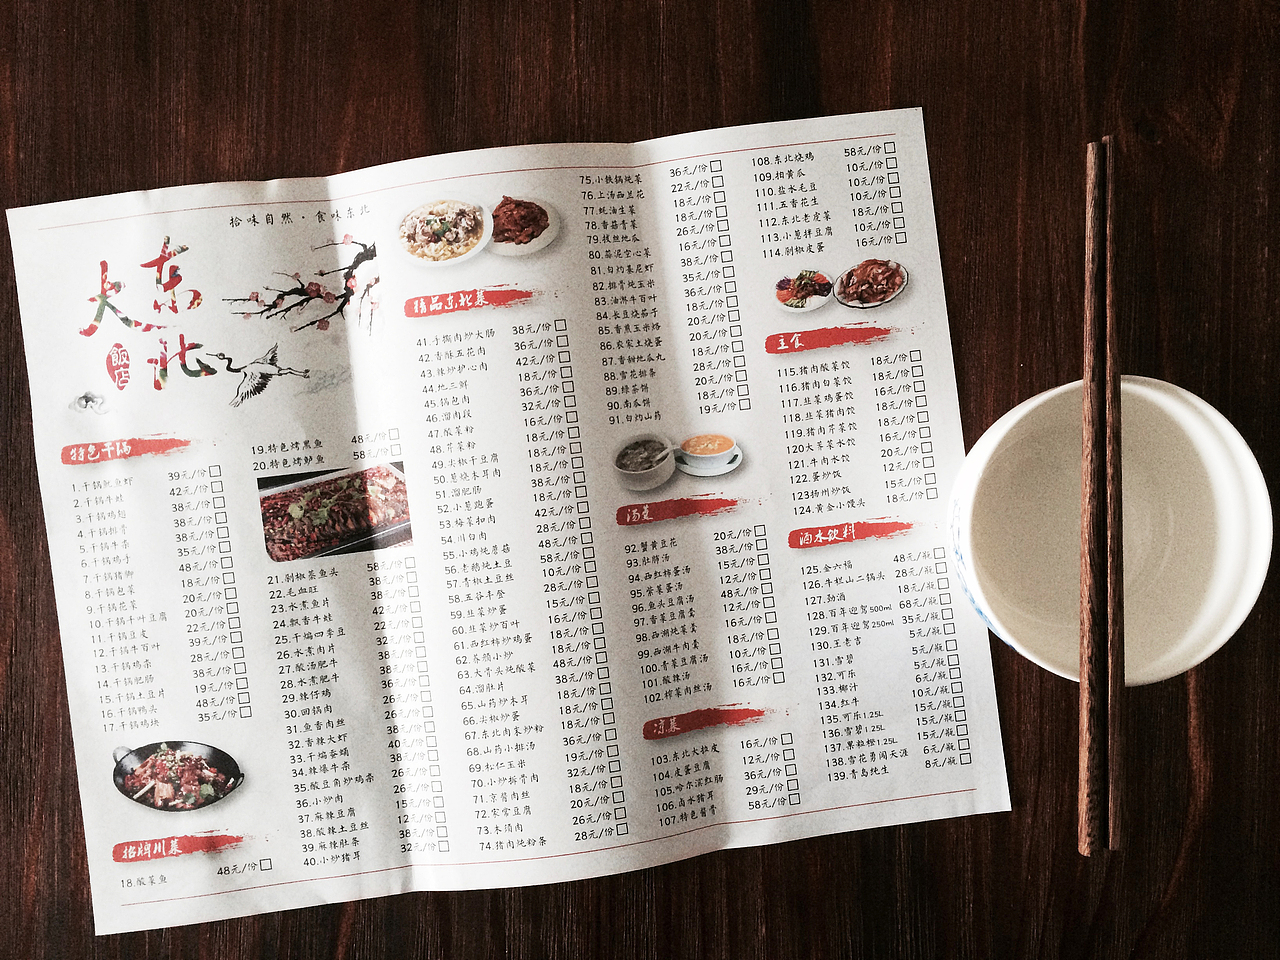 拾味自然·食味东北
大东北
飯店
特色干锅
1.干锅鱿鱼虾 39元/份
2.干锅牛蛙 42元/份
3.干锅鸡翅 38元/份
4.干锅排骨 38元/份
5.干锅牛杂 38元/份
6.干锅鸡子 35元/份
7.干锅猪脚 48元/份
8.干锅包菜 18元/份
9.干锅花菜 20元/份
10.干锅千叶豆腐 20元/份
11.干锅豆皮 22元/份
12.干锅牛百叶 39元/份
13.干锅鸡杂 28元/份
14.干锅肥肠 38元/份
15.干锅土豆片 19元/份
16.干锅鸭头 48元/份
17.干锅鸡块 35元/份
招牌川菜
18.酸菜鱼 48元/份
19.特色烤黑鱼 48元/份
20.特色烤鲈鱼 58元/份
21.剁椒蒸鱼头 58元/份
22.毛血旺 38元/份
23.水煮鱼片 38元/份
24.飘香牛蛙 42元/份
25.干煸四季豆 22元/份
26.水煮肉片
27.酸汤肥牛
28.水煮肥牛
29.辣仔鸡 36元/份
30.回锅肉 26元/份
31.鱼香肉丝 38元/份
32.香辣大虾 38元/份
33.干煸杏鲍 40元/份
34.辣爆牛杂 38元/份
35.酸豆角炒鸡杂 26元/份
36.小炒肉 26元/份
37.麻辣豆腐 15元/份
38.酸辣土豆丝 12元/份
39.麻辣肚条 38元/份
40.小炒猪耳 32元/份
精品东北菜
41.手撕肉炒大肠 38元/份
42.香酥五花肉 36元/份
43.辣炒护心肉 42元/份
44.地三鲜 18元/份
45.锅包肉 36元/份
46.溜肉段 32元/份
47.酸菜粉 16元/份
48.芹菜粉 18元/份
49.尖椒干豆腐 18元/份
50.葱烧木耳肉 18元/份
51.溜肥肠 38元/份
52.小葱跑蛋 18元/份
53.梅菜扣肉 42元/份
54.川白肉 28元/份
55.小鸡炖蘑菇 48元/份
56.老鹅炖土豆 58元/份
57.青椒土豆丝 10元/份
58.五谷丰登 28元/份
59.韭菜炒蛋 16元/份
60.韭菜炒百叶 18元/份
61.西红柿炒鸡蛋 16元/份
62.荞鹅小炒 18元/份
63.大骨头炖酸菜 48元/份
64.溜肚片 38元/份
65.山药炒木耳 18元/份
66.尖椒炒蛋 18元/份
67.东北肉末炒粉 18元/份
68.山药小排汤 36元/份
69.松仁玉米 19元/份
70.小炒拆骨肉 32元/份
71.京酱肉丝 18元/份
72.家常豆腐 20元/份
73.木须肉 26元/份
74.猪肉炖粉条 28元/份
75.小铁锅炖菜 36元/份
76.上汤西兰花 22元/份
77.蚝油生菜 18元/份
78.香菇青菜 18元/份
79.拔丝地瓜 26元/份
80.蒜泥空心菜 16元/份
81.白灼基尼虾 38元/份
82.排骨炖玉米 35元/份
83.油淋牛百叶 36元/份
84.长豆烧茄子 18元/份
85.香煎玉米烙 20元/份
86.农家土烧蛋 20元/份
87.香甜地瓜丸 18元/份
88.雪花排条 28元/份
89.绿茶饼 20元/份
90.南瓜饼 18元/份
91.白灼山药 19元/份
汤羹
92.蟹黄豆花 20元/份
93.肚肺汤 38元/份
94.西红柿蛋汤 15元/份
95.紫菜蛋汤 12元/份
96.鱼头豆腐汤 48元/份
97.香菜豆腐羹 12元/份
98.西湖炖菜羹 16元/份
99.西湖牛肉羹 18元/份
100.青菜豆腐汤 10元/份
101.酸辣汤 16元/份
102.榨菜肉丝汤 16元/份
凉菜
103.东北大拉皮 16元/份
104.皮蛋豆腐 12元/份
105.哈尔滨红肠 36元/份
106.卤水猪耳 29元/份
107.特色酱骨 58元/份
108.东北烧鸡 58元/份
109.拍黄瓜 10元/份
110.盐水毛豆 10元/份
111.五香花生 10元/份
112.东北老虎菜 18元/份
113.小葱拌豆腐 10元/份
114.剁椒皮蛋 16元/份
主食
115.猪肉酸菜饺 18元/份
116.猪肉白菜饺 18元/份
117.韭菜鸡蛋饺 16元/份
118.韭菜猪肉饺 18元/份
119.猪肉芹菜饺 18元/份
120.大荠菜水饺 16元/份
121.牛肉水饺 20元/份
122.蛋炒饭 12元/份
123扬州炒饭 15元/份
124.黄金小馒头 18元/份
酒水饮料
125.金六福 48元/瓶
126.牛栏山二锅头 28元/瓶
127.劲酒
128.百年迎驾500ml 68元/瓶
129.百年迎驾250ml 35元/瓶
130.王老吉 5元/瓶
131.雪碧 5元/瓶
132.可乐 5元/瓶
133.椰汁 6元/瓶
134.红牛 10元/瓶
135.可乐1.25L 15元/瓶
136.雪碧1.25L 15元/瓶
137.果粒橙1.25L 15元/瓶
138.雪花勇闯天涯 6元/瓶
139.青岛纯生 8元/瓶